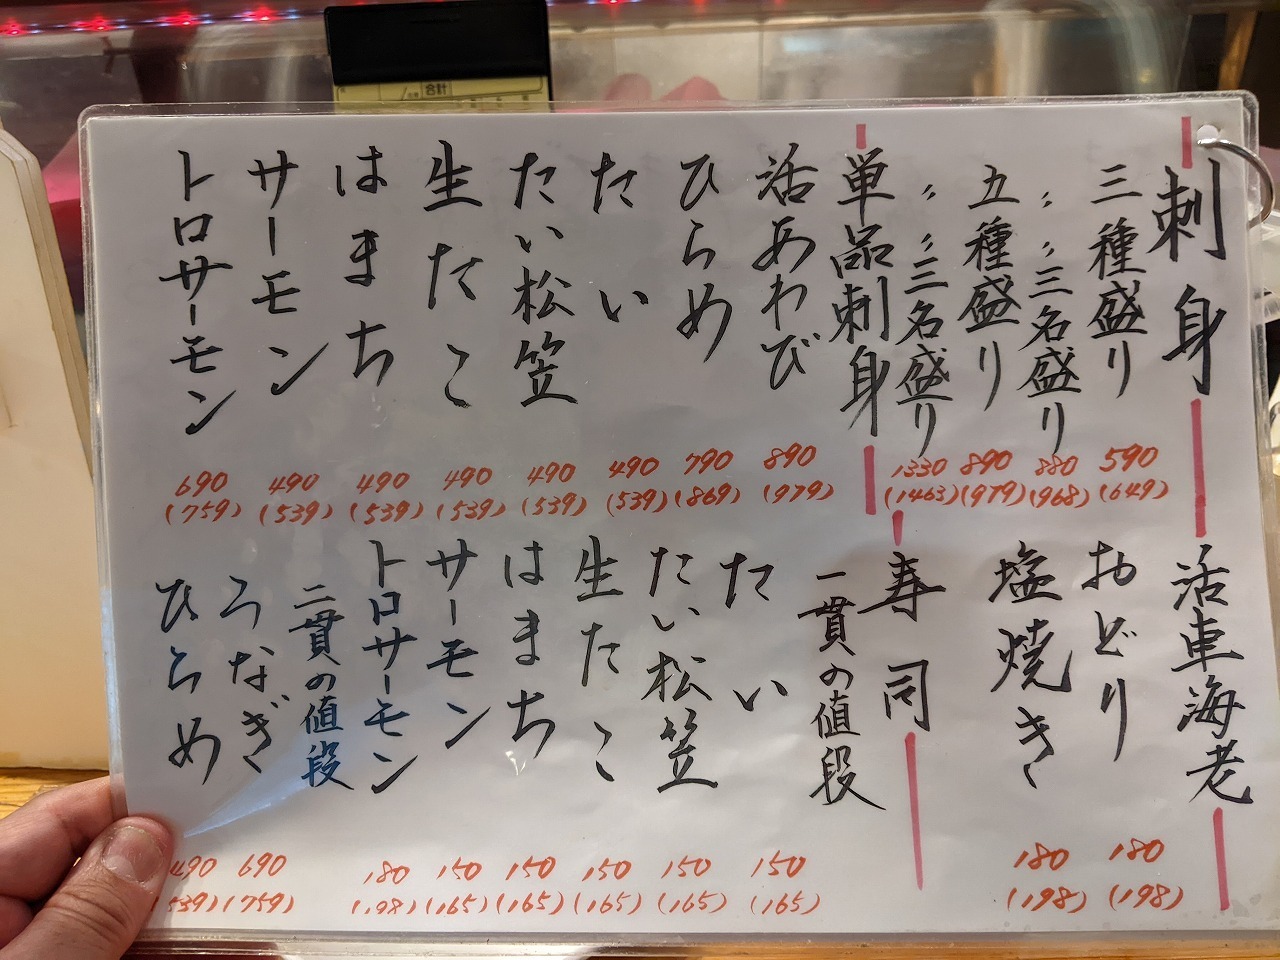 合計
刺身
三種盛り 590 (649)
〃 〃 三名盛り 880 (968)
五種盛り 890 (979)
〃 〃 三名盛り 1330 (1463)
単品刺身
活あわび 890 (979)
ひらめ 790 (869)
たい 490 (539)
たい松笠 490 (539)
生たこ 490 (539)
はまち 490 (539)
サーモン 490 (539)
トロサーモン 690 (759)
活車海老
おどり 180 (198)
塩焼き 180 (198)
寿司
一貫の値段
たい 150 (165)
たい松笠 150 (165)
生たこ 150 (165)
はまち 150 (165)
サーモン 150 (165)
トロサーモン 180 (198)
二貫の値段
うなぎ 690 (759)
ひらめ 490 (539)